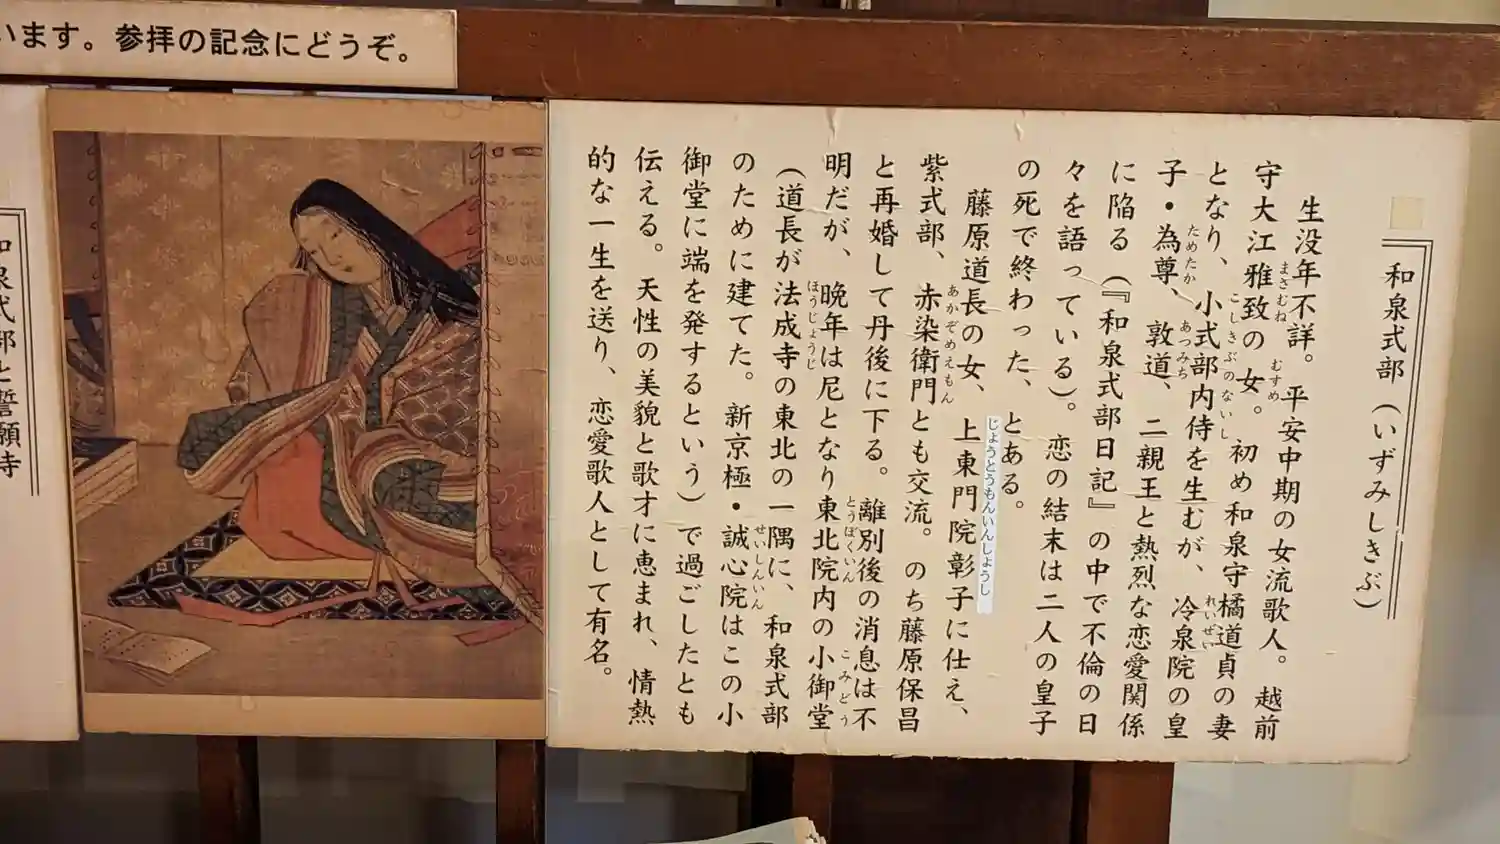 います。参拝の記念にどうぞ。
和泉式部（いずみしきぶ）
生没年不詳。平安中期の女流歌人。越前
守大江雅致の女。初め和泉守橘道貞の妻
まさむね
むすめ
となり、小式部内侍を生むが、冷泉院の皇
こしきぶのないし
れいぜい
子・為尊、敦道、二親王と熱烈な恋愛関係
ためたか
あつみち
に陥る（『和泉式部日記』の中で不倫の日
々を語っている）。恋の結末は二人の皇子
の死で終わった、とある。
藤原道長の女、上東門院彰子に仕え、
じょうとうもんいんしょうし
紫式部、赤染衛門とも交流。のち藤原保昌
あかぞめえもん
と再婚して丹後に下る。離別後の消息は不
明だが、晩年は尼となり東北院内の小御堂
とうぼくいん
こみどう
（道長が法成寺の東北の一隅に、和泉式部
ほうじょうじ
のために建てた。新京極・誠心院はこの小
せいしんいん
御堂に端を発するという）で過ごしたとも
伝える。天性の美貌と歌才に恵まれ、情熱
的な一生を送り、恋愛歌人として有名。
和泉式部と誓願寺